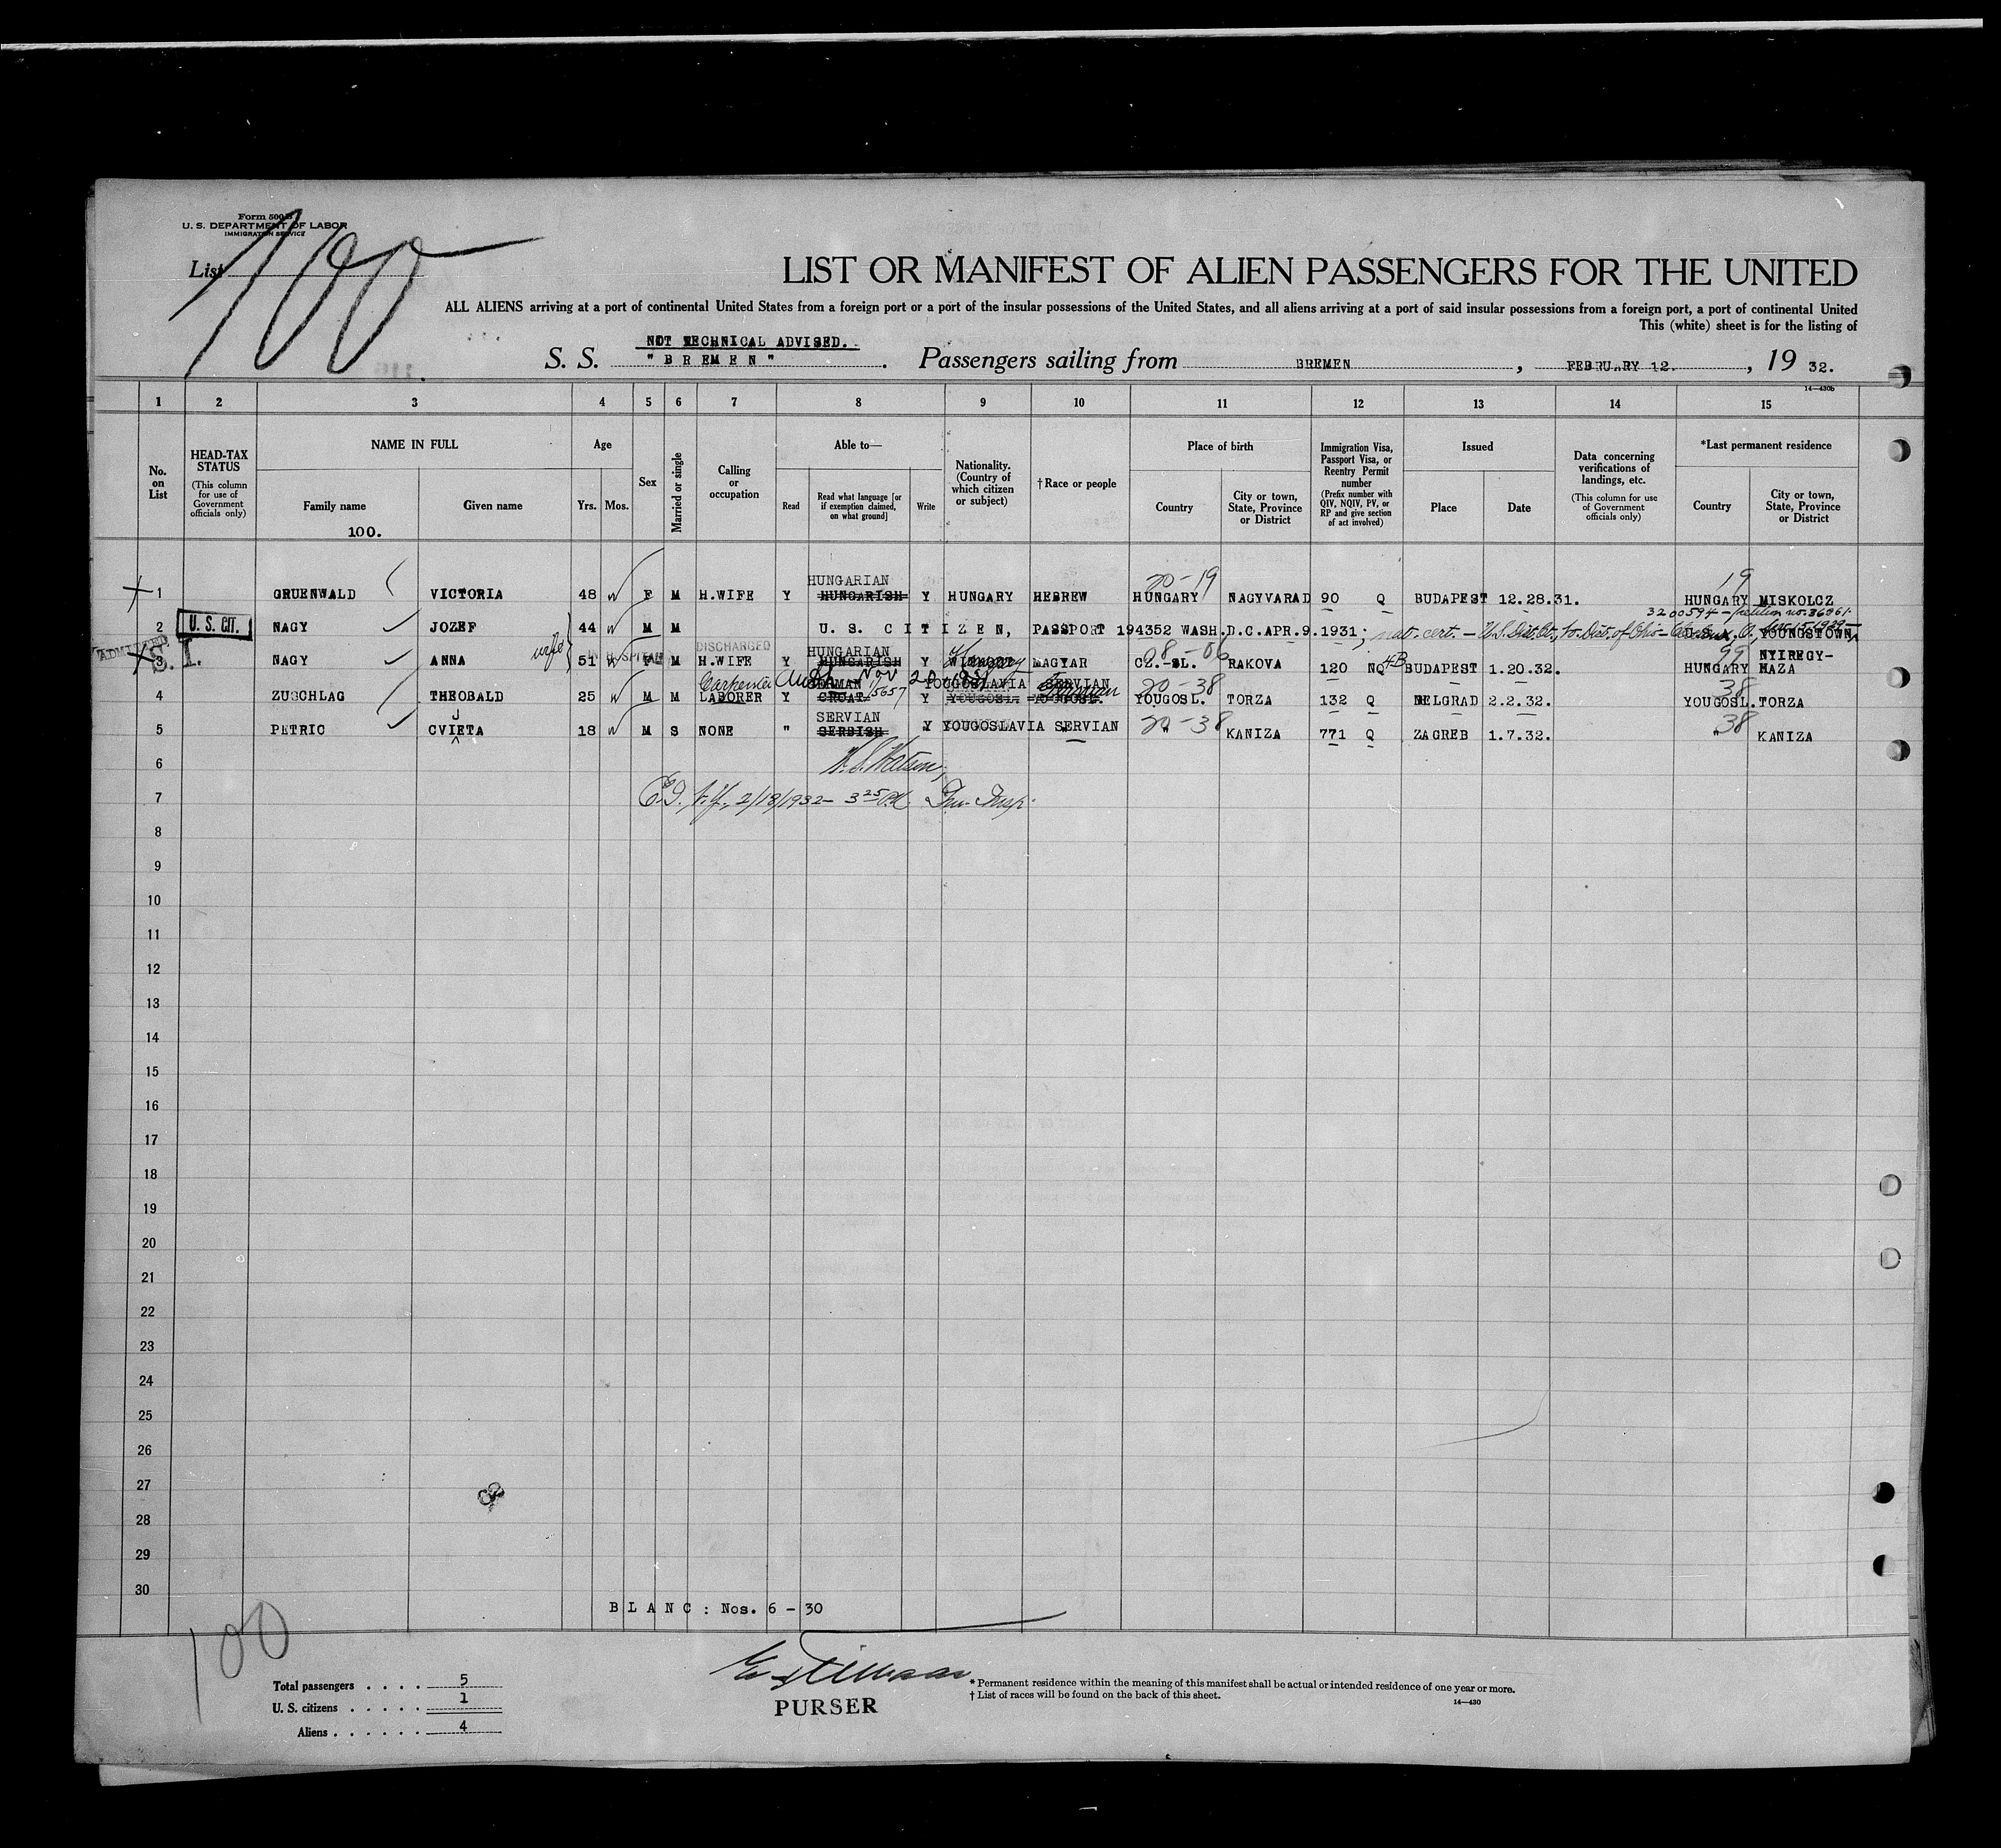 Form 500 B
U. S. DEPARTMENT OF LABOR
IMMIGRATION SERVICE
List 100
LIST OR MANIFEST OF ALIEN PASSENGERS FOR THE UNITED
ALL ALIENS arriving at a port of continental United States from a foreign port or a port of the insular possessions of the United States, and all aliens arriving at a port of said insular possessions from a foreign port, a port of continental United
This (white) sheet is for the listing of
NOT TECHNICAL ADVISED.
S. S. "BREMEN". Passengers sailing from BREMEN, FEBRUARY 12., 19 32.
14—430b
1 2 3 4 5 6 7 8 9 10 11 12 13 14 15
No. on List
HEAD-TAX STATUS (This column for use of Government officials only)
NAME IN FULL
Family name
100.
Given name
Age
Yrs. Mos.
Sex
Married or single
Calling or occupation
Able to—
Read
Read what language [or if exemption claimed, on what ground]
Write
Nationality. (Country of which citizen or subject)
†Race or people
Place of birth
Country
City or town, State, Province or District
Immigration Visa, Passport Visa, or Reentry Permit number (Prefix number with QIV, NQIV, PV, or RP and give section of act involved)
Issued
Place
Date
Data concerning verifications of landings, etc. (This column for use of Government officials only)
*Last permanent residence
Country
City or town, State, Province or District
HUNGARIAN 20-19 19
1 GRUENWALD VICTORIA 48 W F M H.WIFE Y HUNGARISH Y HUNGARY HEBREW HUNGARY NAGYVARAD 90 Q BUDAPEST 12.28.31. HUNGARY MISKOLCZ
3200594 - petition no. 36961.
2 U. S. CIT. NAGY JOZEF 44 W M M U. S. CITIZEN, PASSPORT 194352 WASH.D.C.APR.9.1931; nat. cert. - U.S. Dist. Ct., No. Dist. of Ohio - YOUNGSTOWN
ADMITTED S. I.
wife IN HOSPITAL DISCHARGED HUNGARIAN Hungary 08-06 99 NYIREGY-
3 NAGY ANNA 51 W F M H.WIFE Y HUNGARISH Y MAGYAR CZ.-SL. RAKOVA 120 NQ 4B BUDAPEST 1.20.32. HUNGARY HAZA
Carpenter GERMAN Nov 20 1937 15657 YOUGOSLAVIA SERVIAN German 20-38 38
4 ZUSCHLAG THEOBALD 25 W M M LABORER Y CROAT. Y YOUGOSL. YOUGOSL. YOUGOSL. TORZA 132 Q BELGRAD 2.2.32. YOUGOSL. TORZA
J SERVIAN 20-38 38
5 PETRIC CVIETA 18 W M S NONE " SERBISH Y YOUGOSLAVIA SERVIAN " KANIZA 771 Q ZAGREB 1.7.32. " KANIZA
6 W.S. Watson,
7 E.I. N.Y. 2/18/1932 - 3 25 P.M. Im. Insp.
8
9
10
11
12
13
14
15
16
17
18
19
20
21
22
23
24
25
26
27
28
29
30
BLANC: Nos. 6 - 30
100
Total passengers . . . . 5
U. S. citizens . . . . . 1
Aliens . . . . . . 4
PURSER
* Permanent residence within the meaning of this manifest shall be actual or intended residence of one year or more.
† List of races will be found on the back of this sheet.
14—430